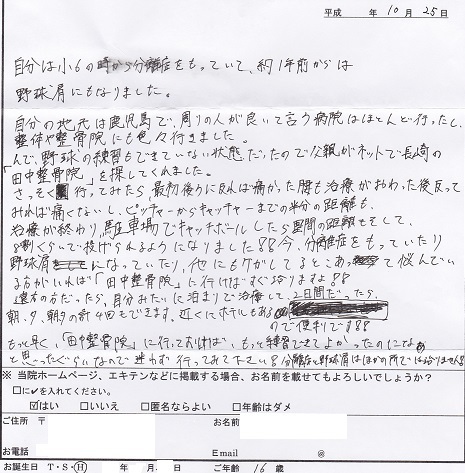 平成 年 10月 25日
自分は小6の時から分離症をもっていて、約1年前からは
野球肩にもなりました。
自分の地元は鹿児島で、周りの人が良いて言う病院はほとんど行ったし、
整体や整骨院にも色々行きました。
んで、野球の練習もできていない状態だったので父親がネットで長崎の
「田中整骨院」を探してくれました。
さっそく行ってみたら、最初後りに反れば痛かった腰も治療がおわった後反って
みれば痛くないし、ピッチャーからキャッチャーまでの半分の距離も、
治療が終わり、駐車場でキャッチボールしたら塁間の距離もそして、
8割くらいで投げられるようになりました!!今、分離症をもっていたり
野球肩になっていたり、他にもケガしてるとこあって悩んでい
る方がいれば「田中整骨院」に行けばすぐ治りますよ!!
遠方の方だったら、自分みたいに泊まりで治療して、2日間だったら、
朝、夕、朝夕の計4回もできます。近くにホテルもある
ので便利です!!
もっと早く、「田中整骨院」に行っておけば、もっと練習できてよかったのになぁ
と思ったぐらいなので迷わず行ってみて下さい!分離症と野球肩はほかの所では治りません!
※ 当院ホームページ、エキテンなどに掲載する場合、お名前を載せてもよろしいでしょうか?
□に✓を入れてください。
☑はい □いいえ □匿名ならよい □年齢はダメ
ご住所 〒 お名前
お電話 Email @
お誕生日 T・S・Ⓗ 年 月 日 ご年齢 16 歳